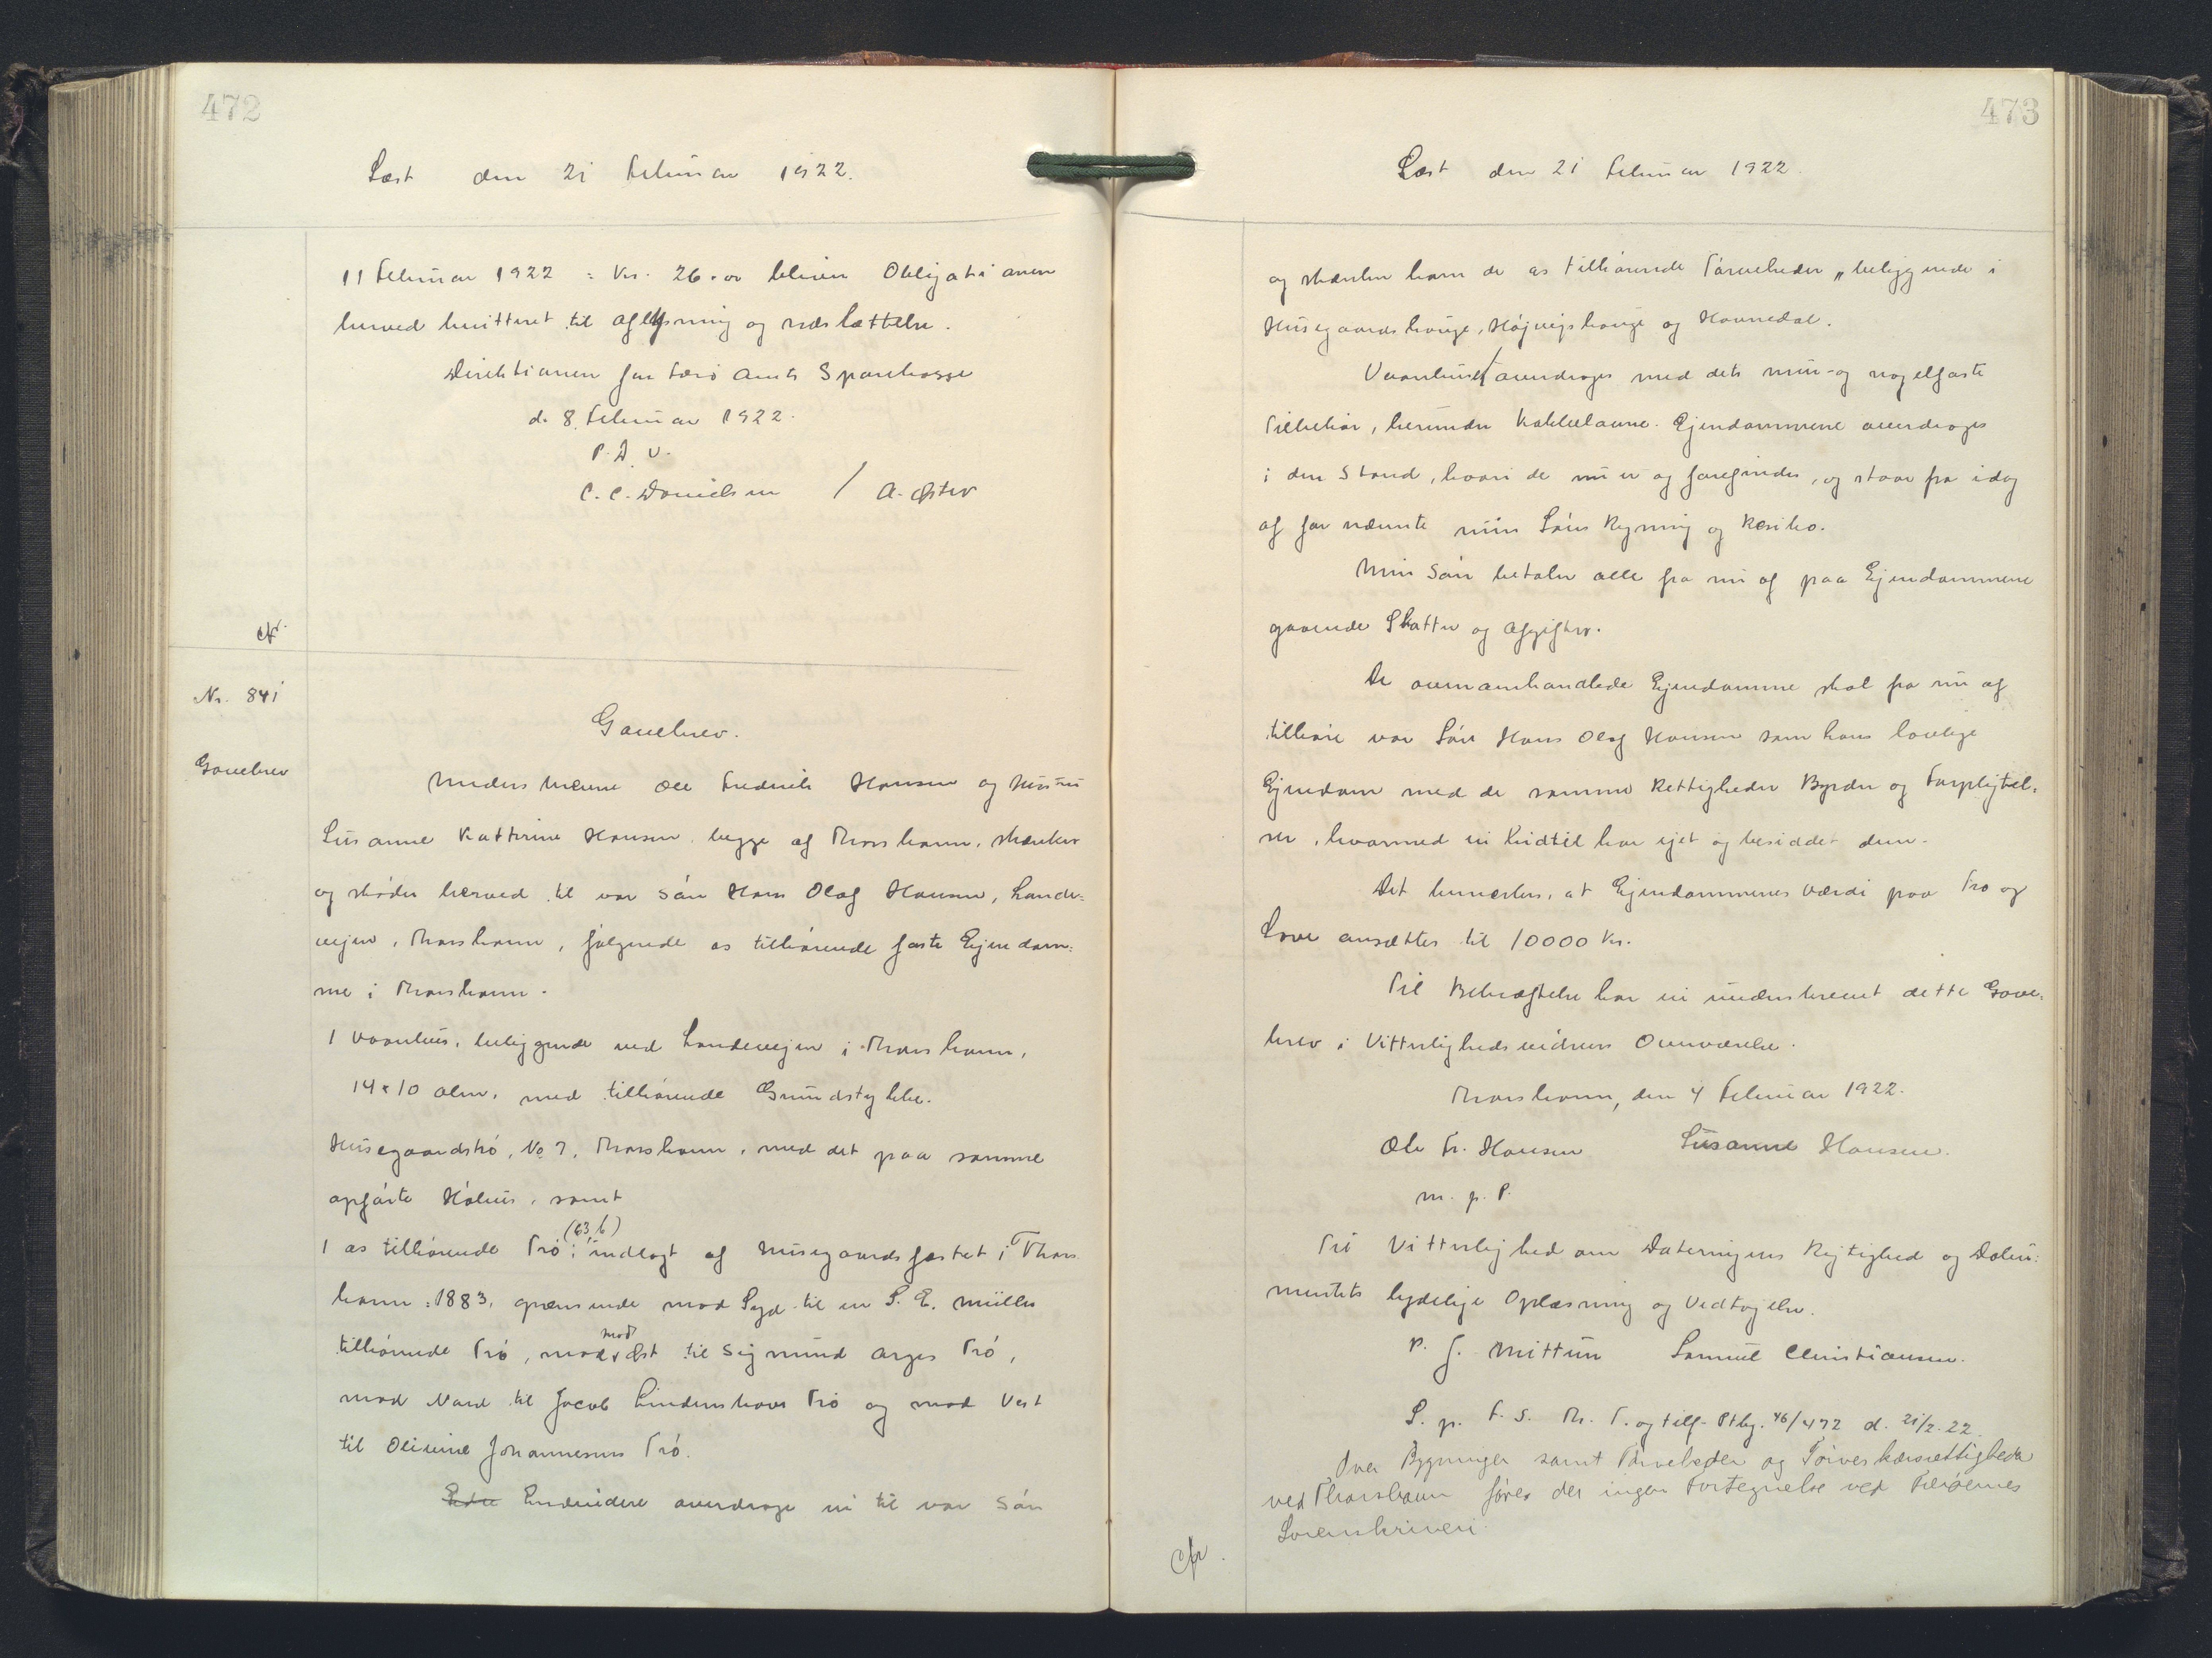 472
Læst den 21 Februar 1922.
11 Februar 1922 = Kr. 26.00 bliver Obligationen
herved kvitteret til aflysning og udslættelse.
Direktionen for Færø Amts Sparekasse
d. 8. Februar 1922.
P. D. V.
C. C. Danielsen / A. Øster
cfr.
Nr. 841
Gavebrev
Gavebrev.
Underskrevne Ole Fredrik Hansen og Hustru
Susanne Kathrine Hansen, begge af Thorshavn, skænker
og skøder herved til vor Søn Hans Olaf Hansen, Lande=
vejen, Thorshavn, følgende os tilhørende faste Ejendom=
me i Thorshavn.
1 Vaanhus, beliggende ved Landevejen i Thorshavn,
14 x 10 alen, med tilhørende Grundstykke.
Husegaardstrø, No 7, Thorshavn, med det paa samme
opførte Høhus, samt
1 os tilhørende Trø (63, b) indlagt af Husegaardsfæstet i Thors
havn 1883, grænsende mod Syd til en S. E. Müller
tilhørende Trø, mod Øst til Sigmund Arges Trø,
mod Nord til Jacob Lindenskovs Trø og mod Vest
til Olivine Johannesens Trø.
Endvidere overdrage vi til vor Søn
473
Læst den 21 Februar 1922.
og skænker ham de os tilhørende Tørveheder „beliggende i
Husegaardshauge, Højvigshauge og Havnedal.
Vaanhuset overdrages med dets mur- og nagelfaste
Tilbehør, herunder Kakkelovne. Ejendommene overdrages
i den Stand, hvori de nu er og forefindes, og staar fra idag
af for nævnte min Søns Regning og Resiko.
Min Søn betaler alle fra nu af paa Ejendommene
gaaende Skatter og Afgifter.
De ovenomhandlede Ejendomme skal fra nu af
tilhøre vor Søn Hans Olaf Hansen som hans lovlige
Ejendom med de samme Rettigheder Byrder og Forpligtel=
ser, hvormed vi hidtil har ejet og besiddet dem.
Det bemærkes, at Ejendommenes Værdi paa Tro og
Love ansættes til 10000 Kr.
Til Bekræftelse har vi underskrevet dette Gave=
brev i Vitterlighedsvidners Overværelse.
Thorshavn, den 4 Februar 1922.
Ole Fr. Hansen Susanne Hansen.
m. f. P.
Til Vitterlighed om Dateringens Rigtighed og Doku=
mentets lydelige Oplæsning og Vedtagelse.
P. J. Mittun Samuel Christiansen.
S. p. F. S. Th. T. og tilf. Ptbg. 46/472 d. 21/2. 22.
Over Bygninger samt Tørveheder og Tørveskærsrettigheder
ved Thorshavn føres der ingen Fortegnelse ved Færøernes
Sorenskriveri.
cfr.